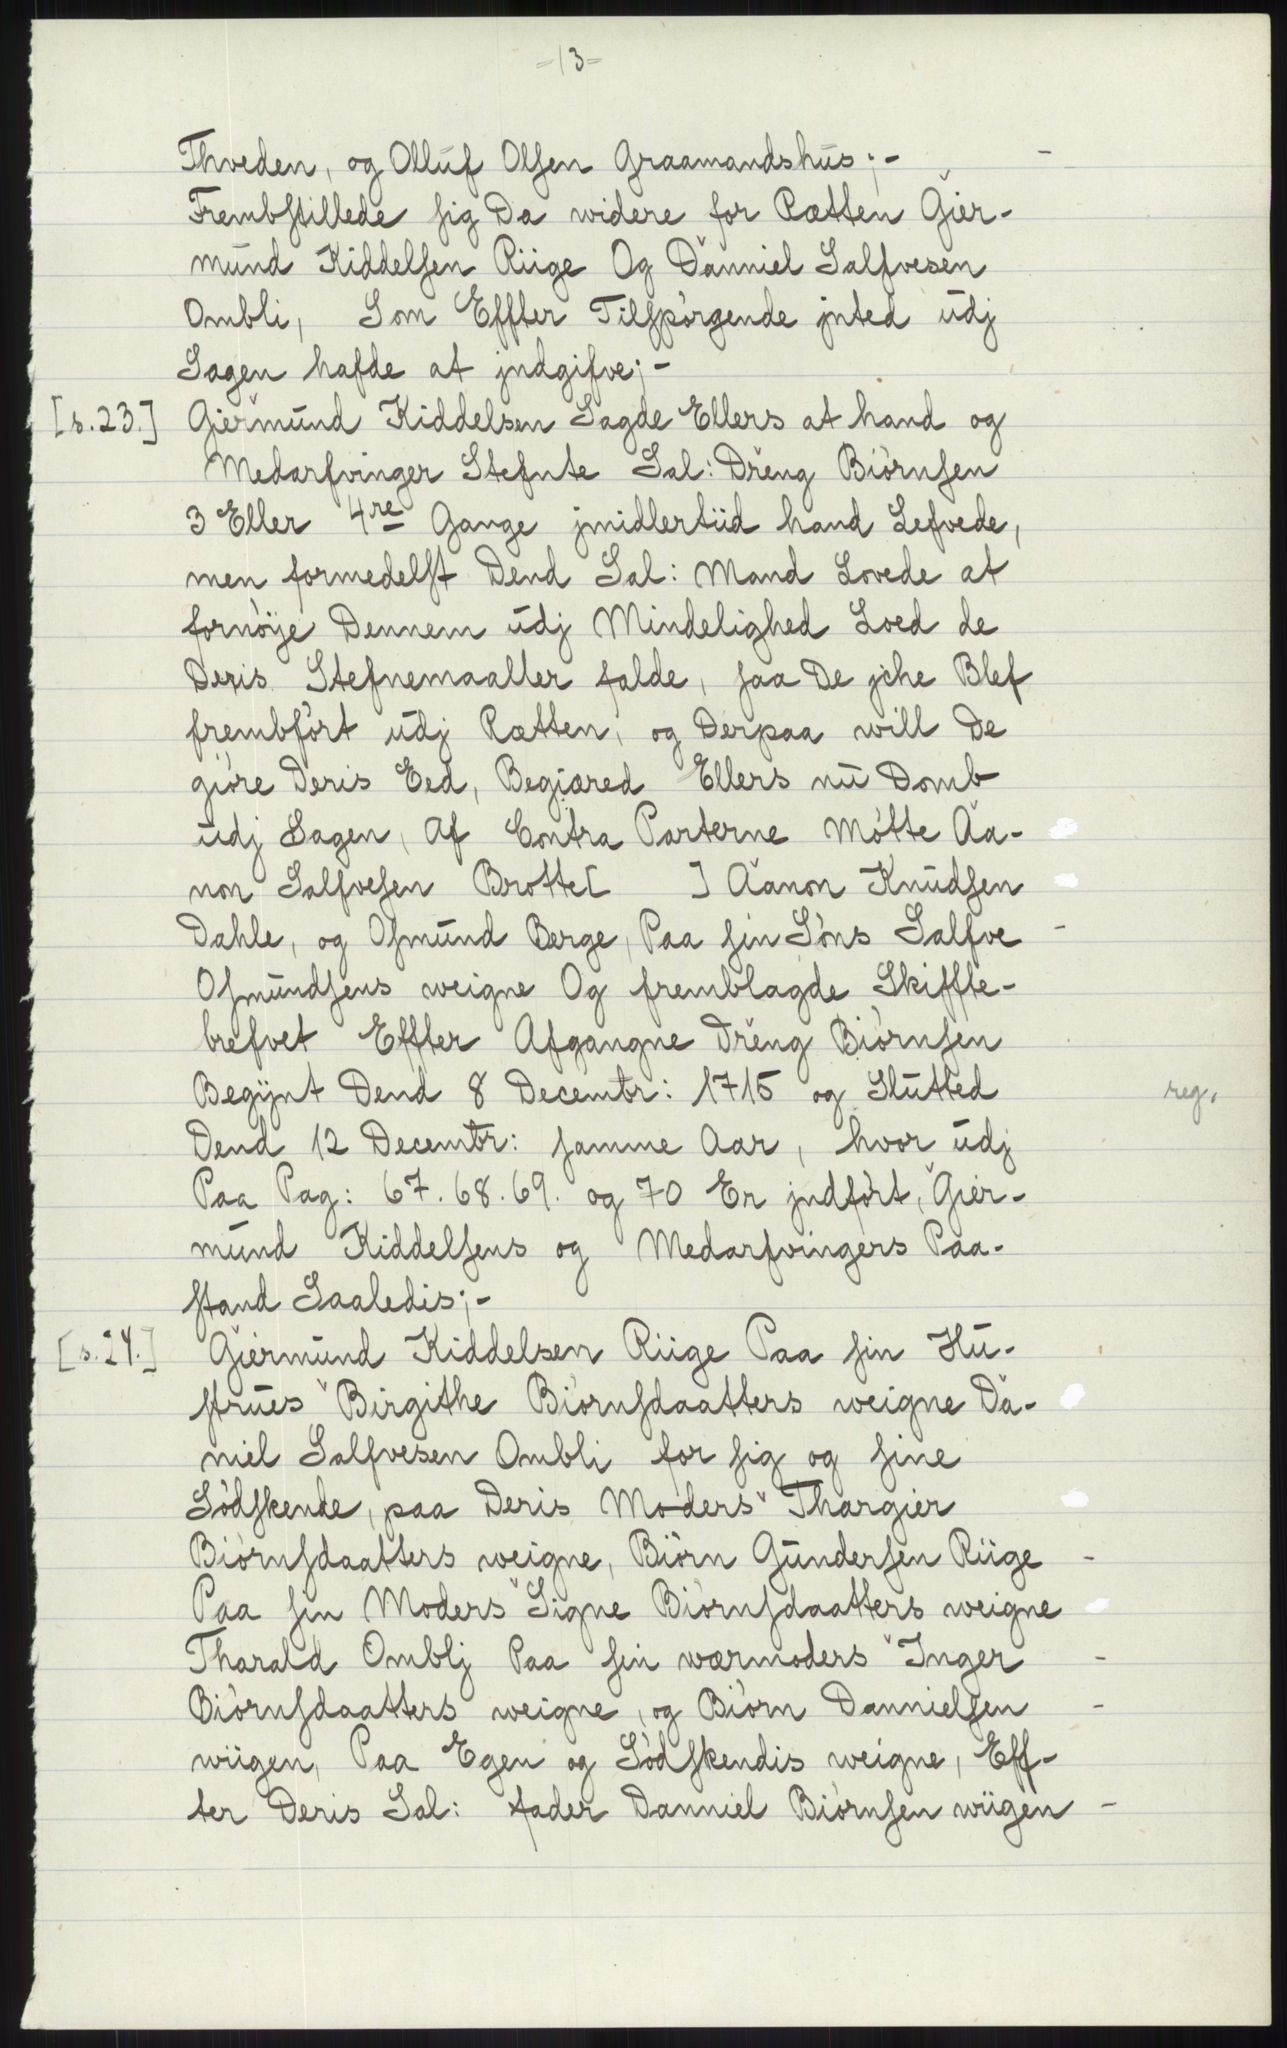 -13-
Thveden, og Olluf Olsen Graamandshus;-
Frembstillede sig Da widere for Rætten Gier-
mund Kiddelsen Riige Og Danniel Salfvesen
Ombli, Som Effter Tilspørgende jnted udj
Sagen hafde at jndgifve;-
[s.23.] Giermund Kiddelsen Sagde Ellers at hand og
Medarfvinger Stefnte Sal: Dreng Biørnsen
3 Eller 4re Gange jmidlertiid hand Lefvede,
men formedelst Dend Sal: Mand Lovede at
fornøye Dennem udj Mindelighed Loed de
Deris Stefnemaaller falde, saa De jche Blef
frembført udj Rætten, og Derpaa will De
giøre Deris Eed, Begiæred Ellers nu Domb
udj Sagen, Af Contra Parterne Møtte Aa-
non Salfvesen Brotte[ ] Aanon Knudsen
Dahle, og Osmund Berge, Paa sin Søns Salfve
Osmundsens weigne Og fremblagde Skiffte-
brefvet Effter Afgangne Dreng Biørnsen
Begynt Dend 8 Decembr: 1715 og Slutted reg.
Dend 12 Decembr: samme Aar, hvor udj
Paa Pag: 67. 68. 69. og 70 Er jndført, Gier-
mund Kiddelsens og Medarfvingers Paa-
stand Saaledis;-
[s.24.] Giermund Kiddelsen Riige Paa sin Hu-
strues Birgithe Biørnsdaatters weigne Da-
niel Salfvesen Ombli for sig og sine
Sødskende, paa Deris Moders Thargier
Biørnsdaatters weigne, Biørn Gundersen Riige
Paa sin Moders Signe Biørnsdaatters weigne
Tharald Omblj Paa sin wærmoders Inger
Biørnsdaatters weigne, og Biørn Dannielsen
wiigen, Paa Egen og Sødskendis weigne, Eff-
ter Deris Sal: fader Danniel Biørnsen wiigen